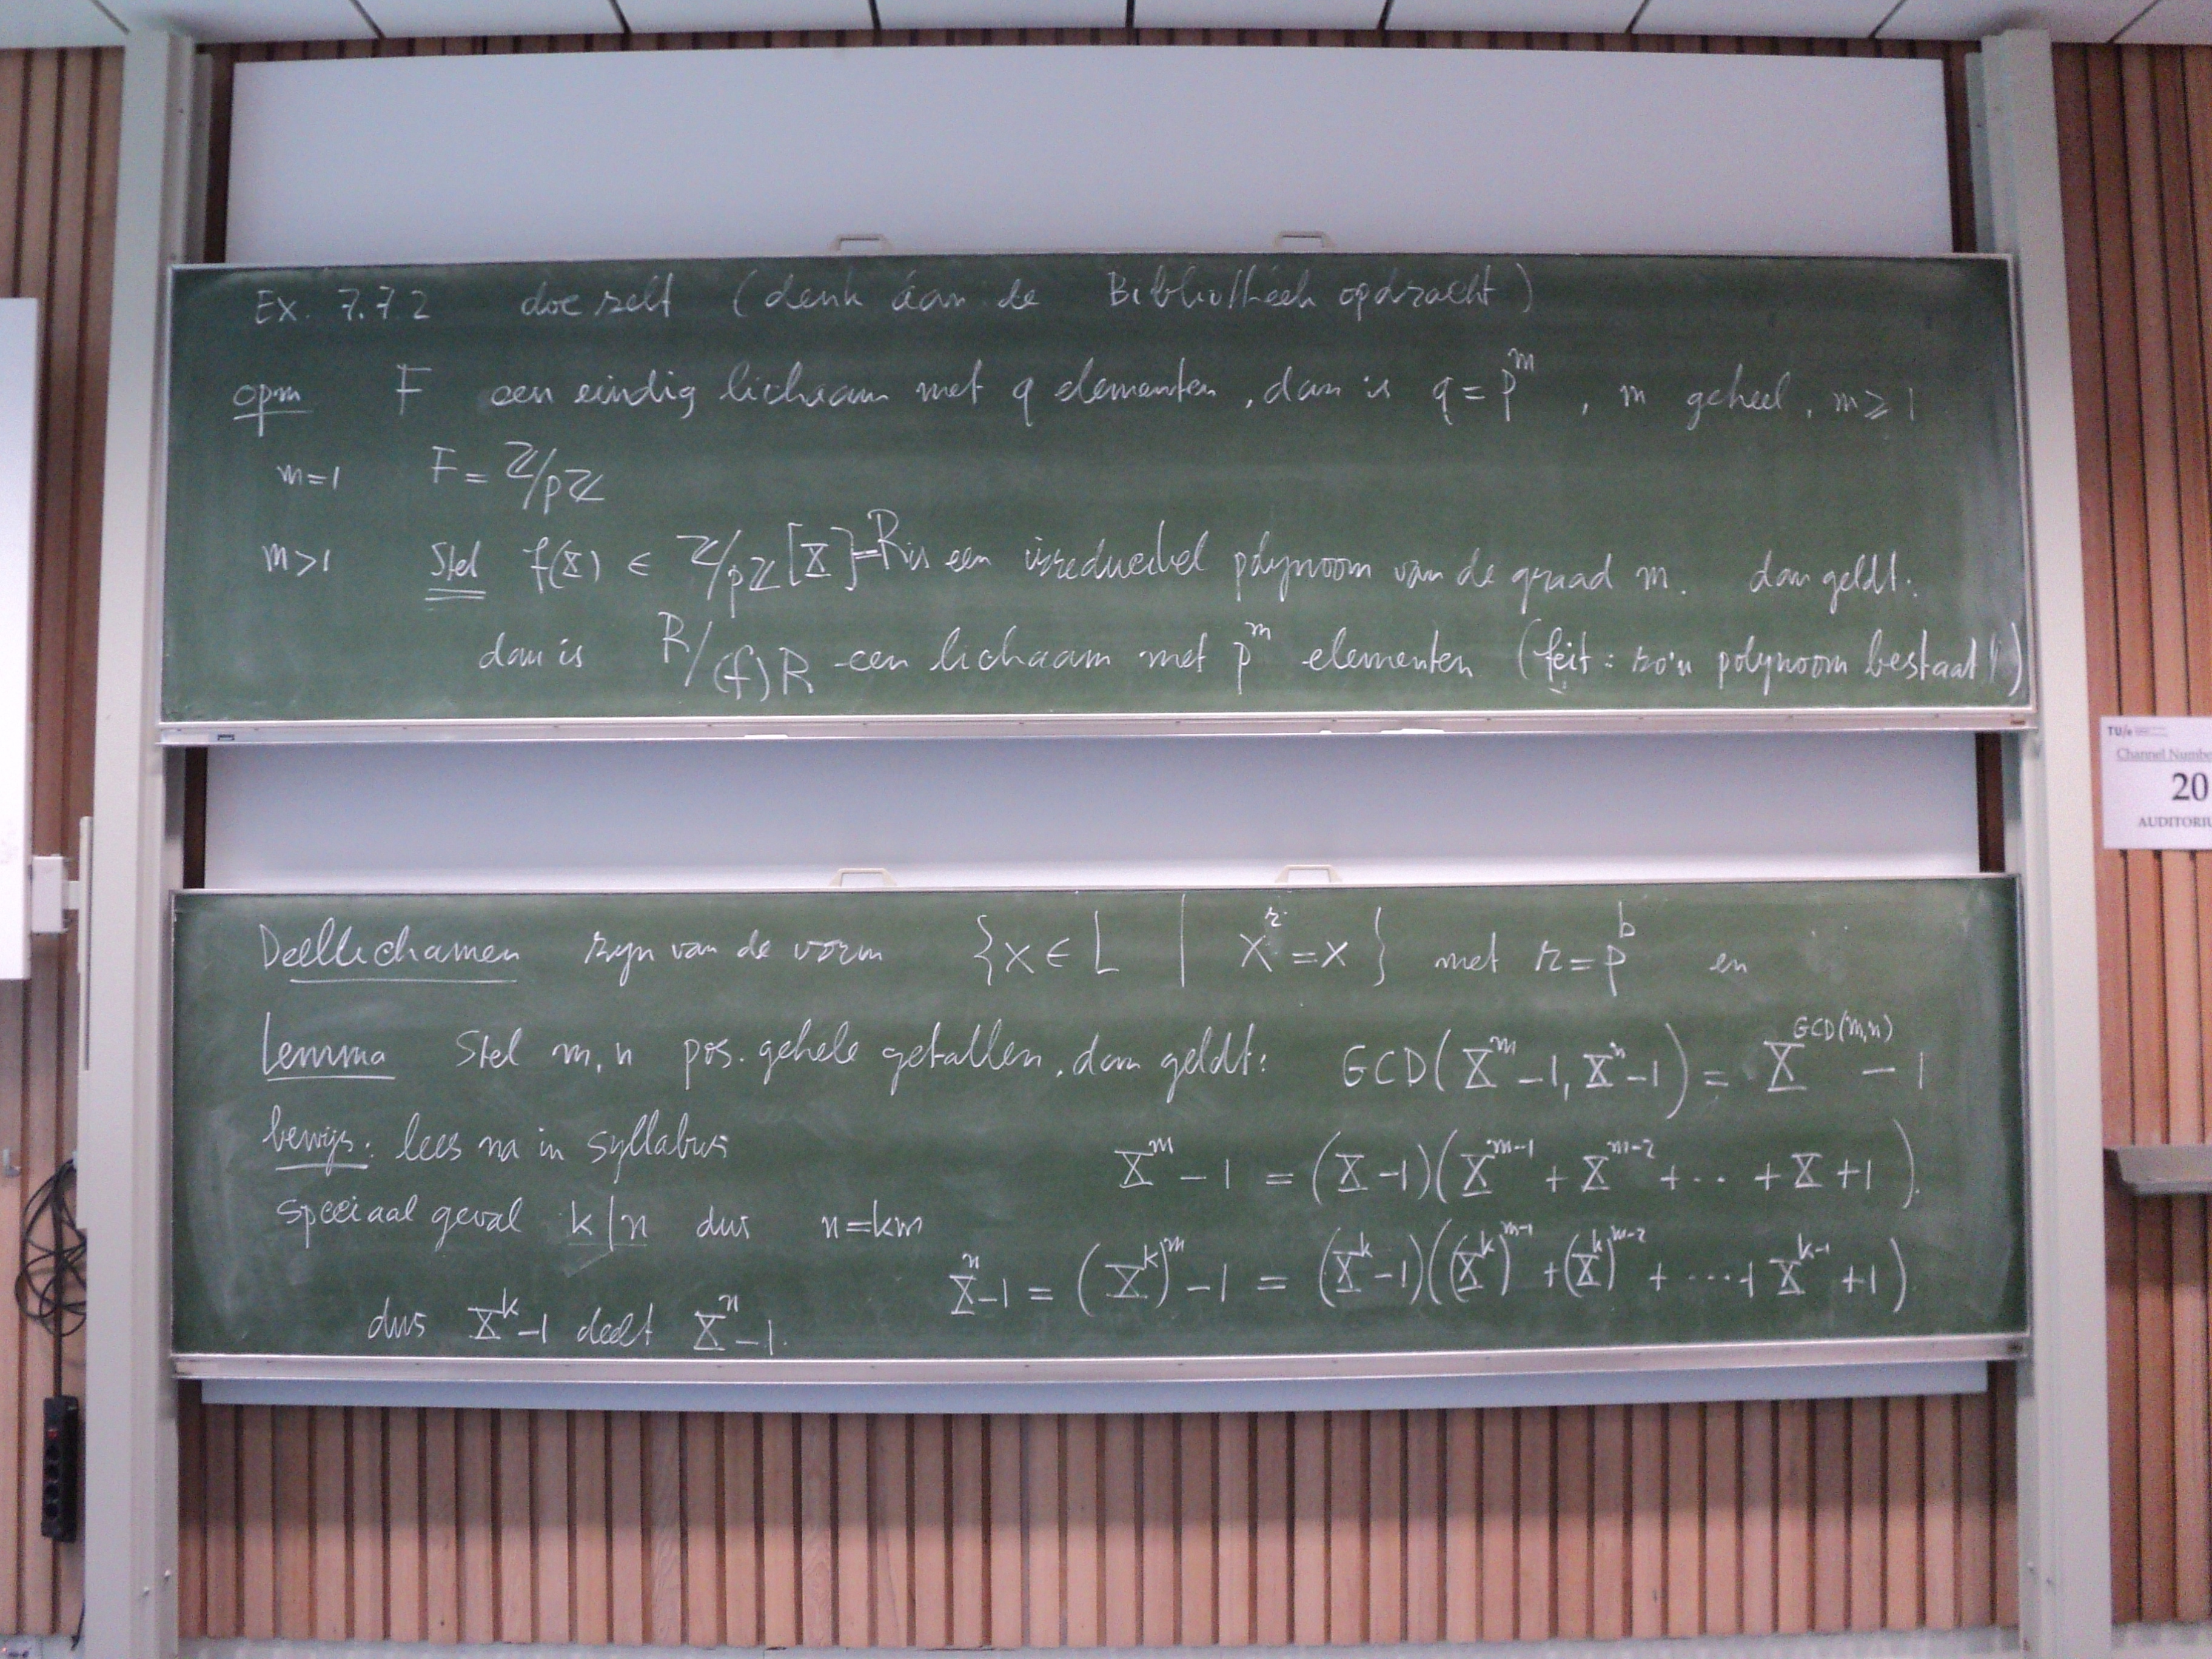 Ex. 7.7.2 doe zelf (denk áan de Bibliotheek opdracht)
opm F een eindig lichaam met q elementen, dan is q = p^m, m geheel, m ≥ 1
m=1 F = ℤ/pℤ
m>1 Stel f(X) ∈ ℤ/pℤ[X]=R is een irreducibel polynoom van de graad m. dan geldt:
dan is R/(f)R een lichaam met p^m elementen (feit: zo'n polynoom bestaat!)
TU/e
Channel Numbe
20
AUDITORIU
Deellichamen zijn van de vorm {x ∈ L | x^r = x} met r = p^b en
Lemma Stel m, n pos. gehele getallen, dan geldt: GCD(X^m − 1, X^n − 1) = X^GCD(m,n) − 1
bewijs: lees na in syllabus X^m − 1 = (X − 1)(X^{m−1} + X^{m−2} + ... + X + 1).
speciaal geval k|n dus n = km
X^n − 1 = (X^k)^m − 1 = (X^k − 1)((X^k)^{m−1} + (X^k)^{m−2} + ... + X^{k−1} + 1)
dus X^k − 1 deelt X^n − 1.